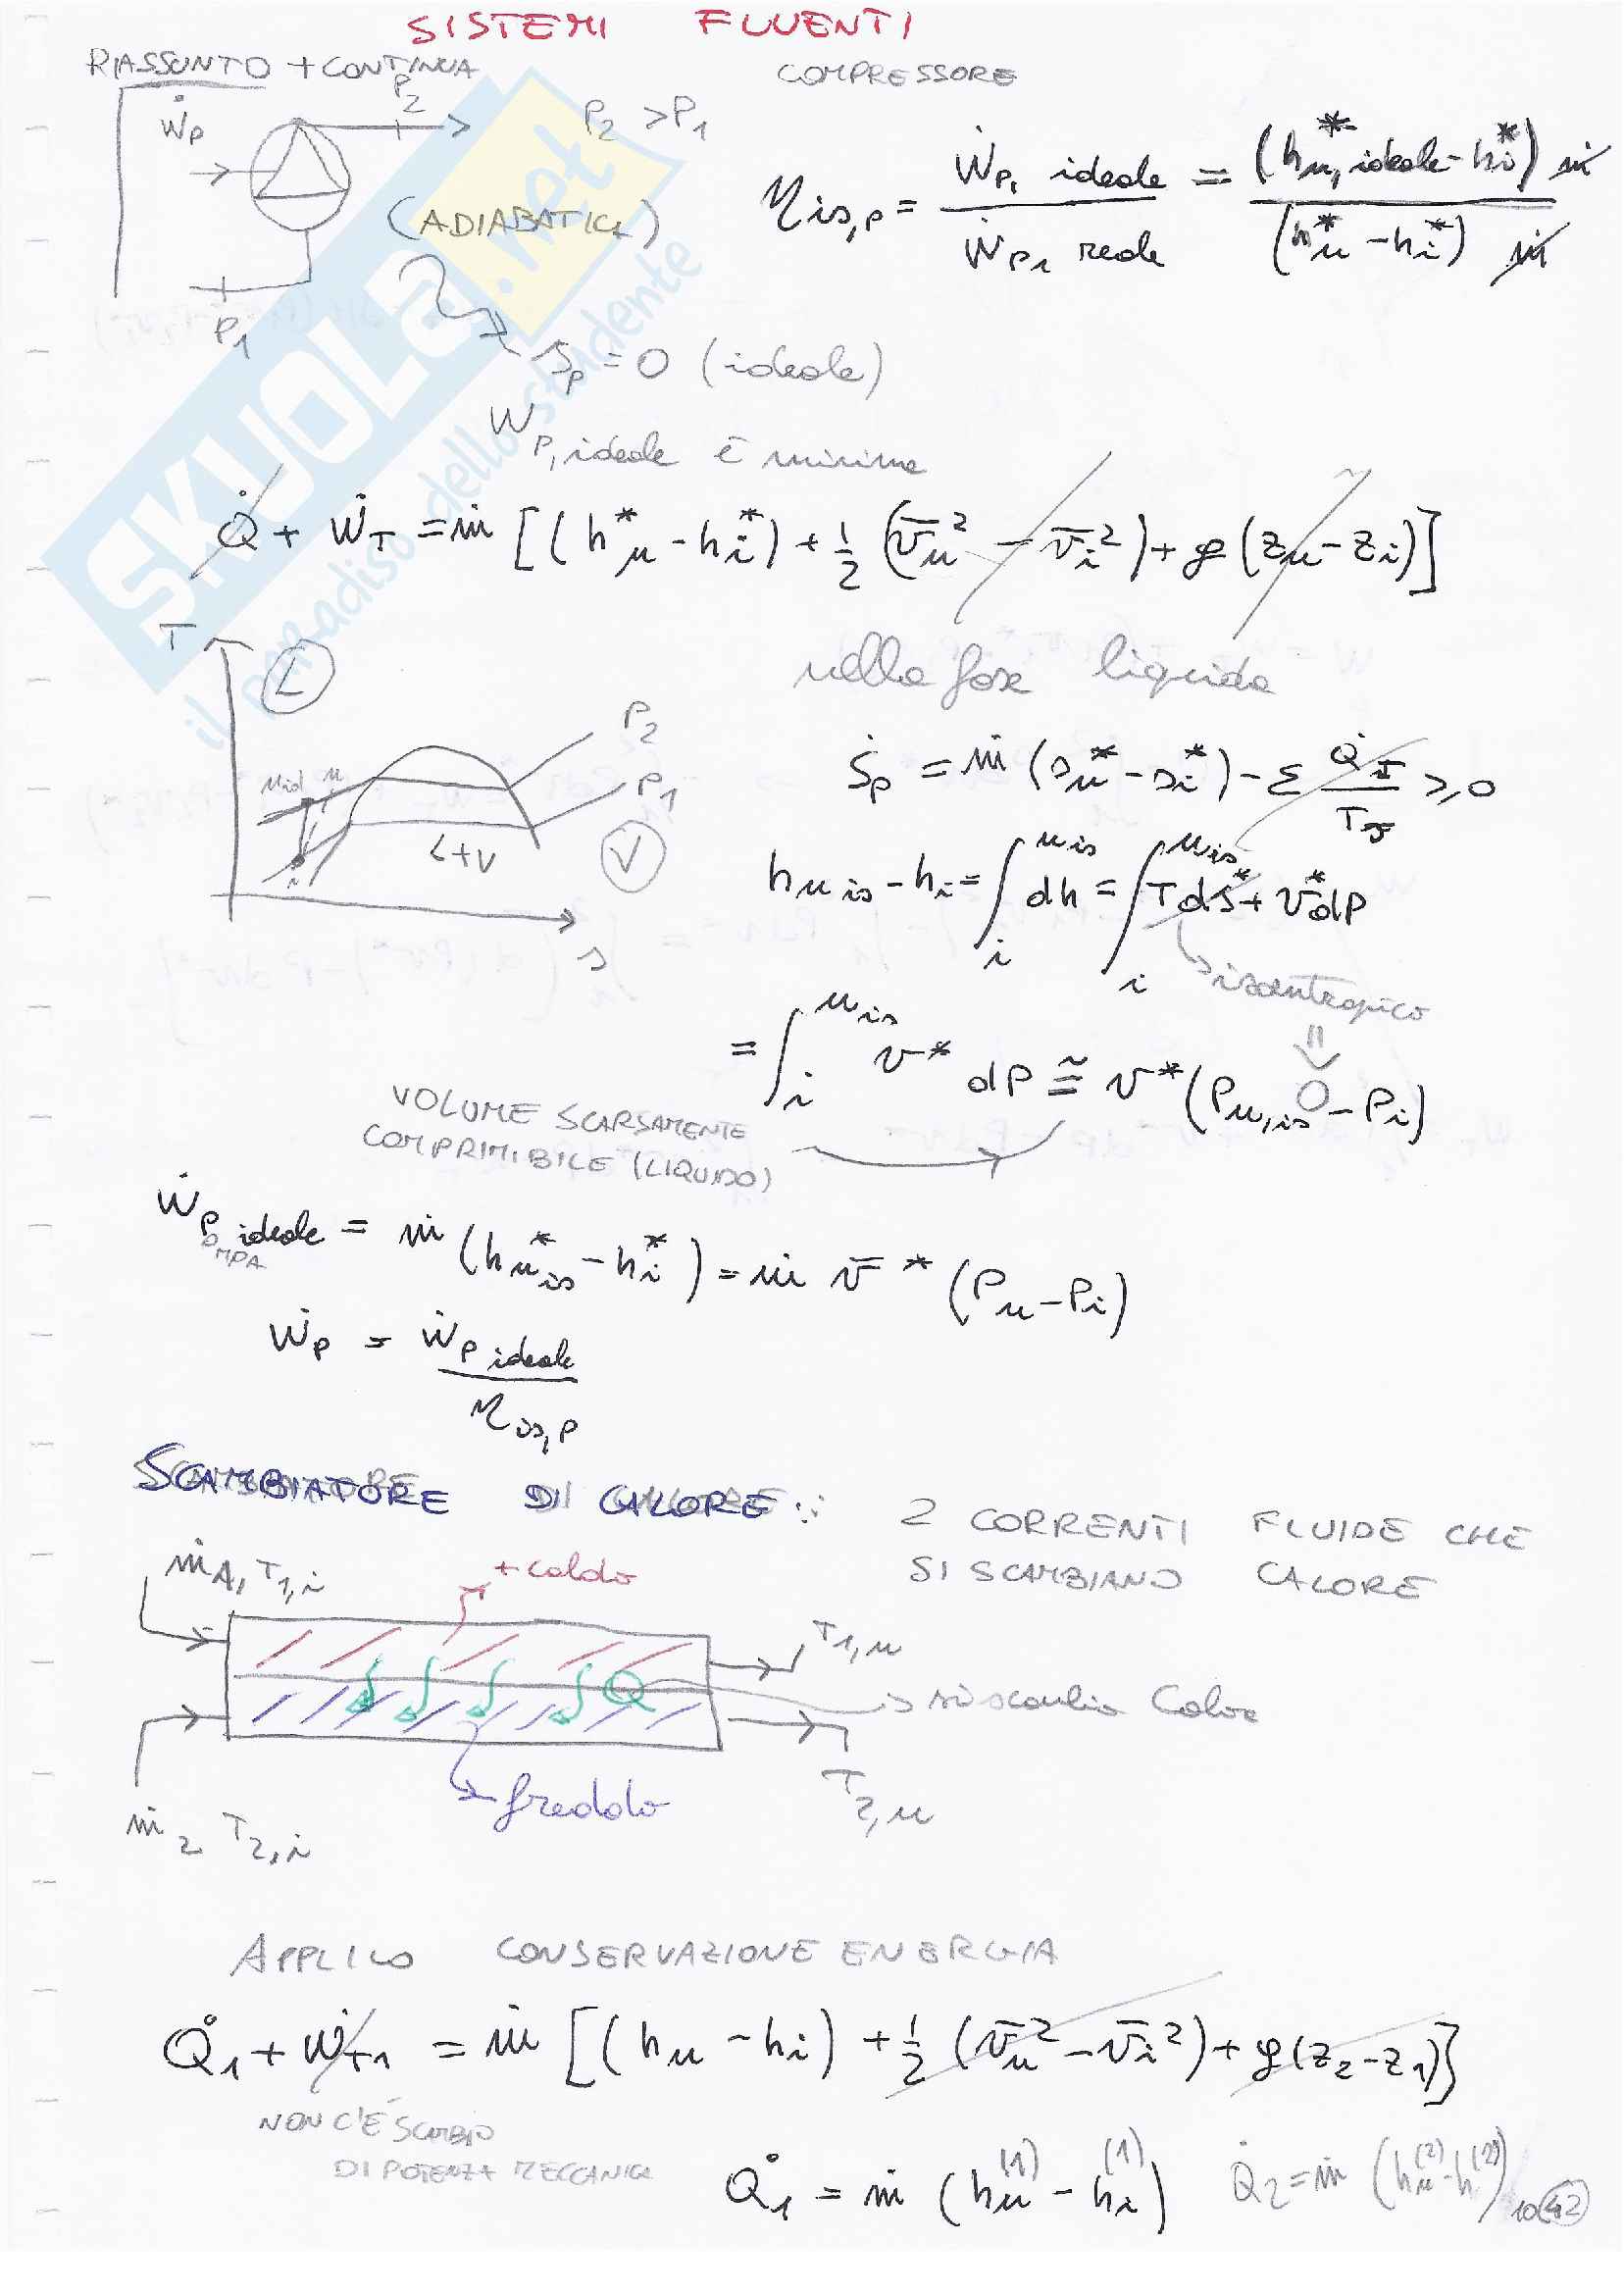 SISTEMI FLUENTI
RIASSUNTO + CONTINUA
COMPRESSORE
Ẇp
P2
P2 > P1
(ADIABATICA)
P1
η is,p = Ẇp, ideale / Ẇp, reale = (h*u, ideale - h*i) ṁ / (h*u - h*i) ṁ
Ṡp = 0 (ideale)
Wp, ideale è minima
Q̇ + ẆT = ṁ [(h*u - h*i) + 1/2 (v̄u² - v̄i²) + g (zu - zi)]
T
L
P2
P1
uid u
i
L+V
V
s
nella fase liquida
Ṡp = ṁ (s*u - s*i) - Σ Q̇J / TJ ≥ 0
hu is - hi = ∫i^uis dh = ∫i^uis Tds* + v*dP
isoentropico
⇓
0
= ∫i^uis v* dP ≅ v* (Pu,is - Pi)
VOLUME SCARSAMENTE
COMPRIMIBILE (LIQUIDO)
Ẇ POMPA ideale = ṁ (h*uis - h*i) = ṁ v̄* (Pu - Pi)
Ẇp = Ẇp ideale / η is,p
SCAMBIATORE DI CALORE:
2 CORRENTI FLUIDE CHE
SI SCAMBIANO CALORE
ṁA, T1,i
+ caldo
T1,u
Q
si scambia Calore
freddo
T2,u
ṁ2 T2,i
APPLICO CONSERVAZIONE ENERGIA
Q̇1 + ẆT1 = ṁ [(hu - hi) + 1/2 (v̄u² - v̄i²) + g (z2 - z1)]
NON C'È SCAMBIO
DI POTENZA MECCANICA
Q̇1 = ṁ (hu(1) - hi(1))
Q̇2 = ṁ (hu(2) - h(2))
42
SKUOLA.net
il paradiso dello studente